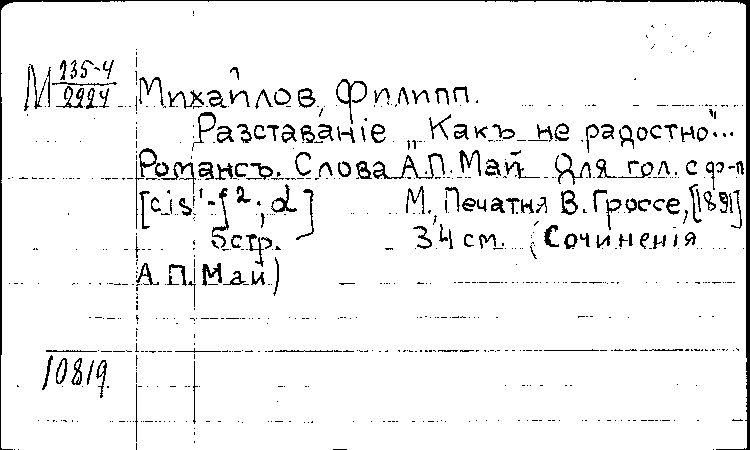 М 235-4
2924
Михайлов, Филипп.
Разставанiе „Какъ не радостно"...
Романсъ. Слова А.П. Май Для гол. с ф-п
[cis¹-f²; d] М., Печатня В. Гроссе, [1891]
5стр. 34 см. (Сочиненiя
А.П. Май)
10819